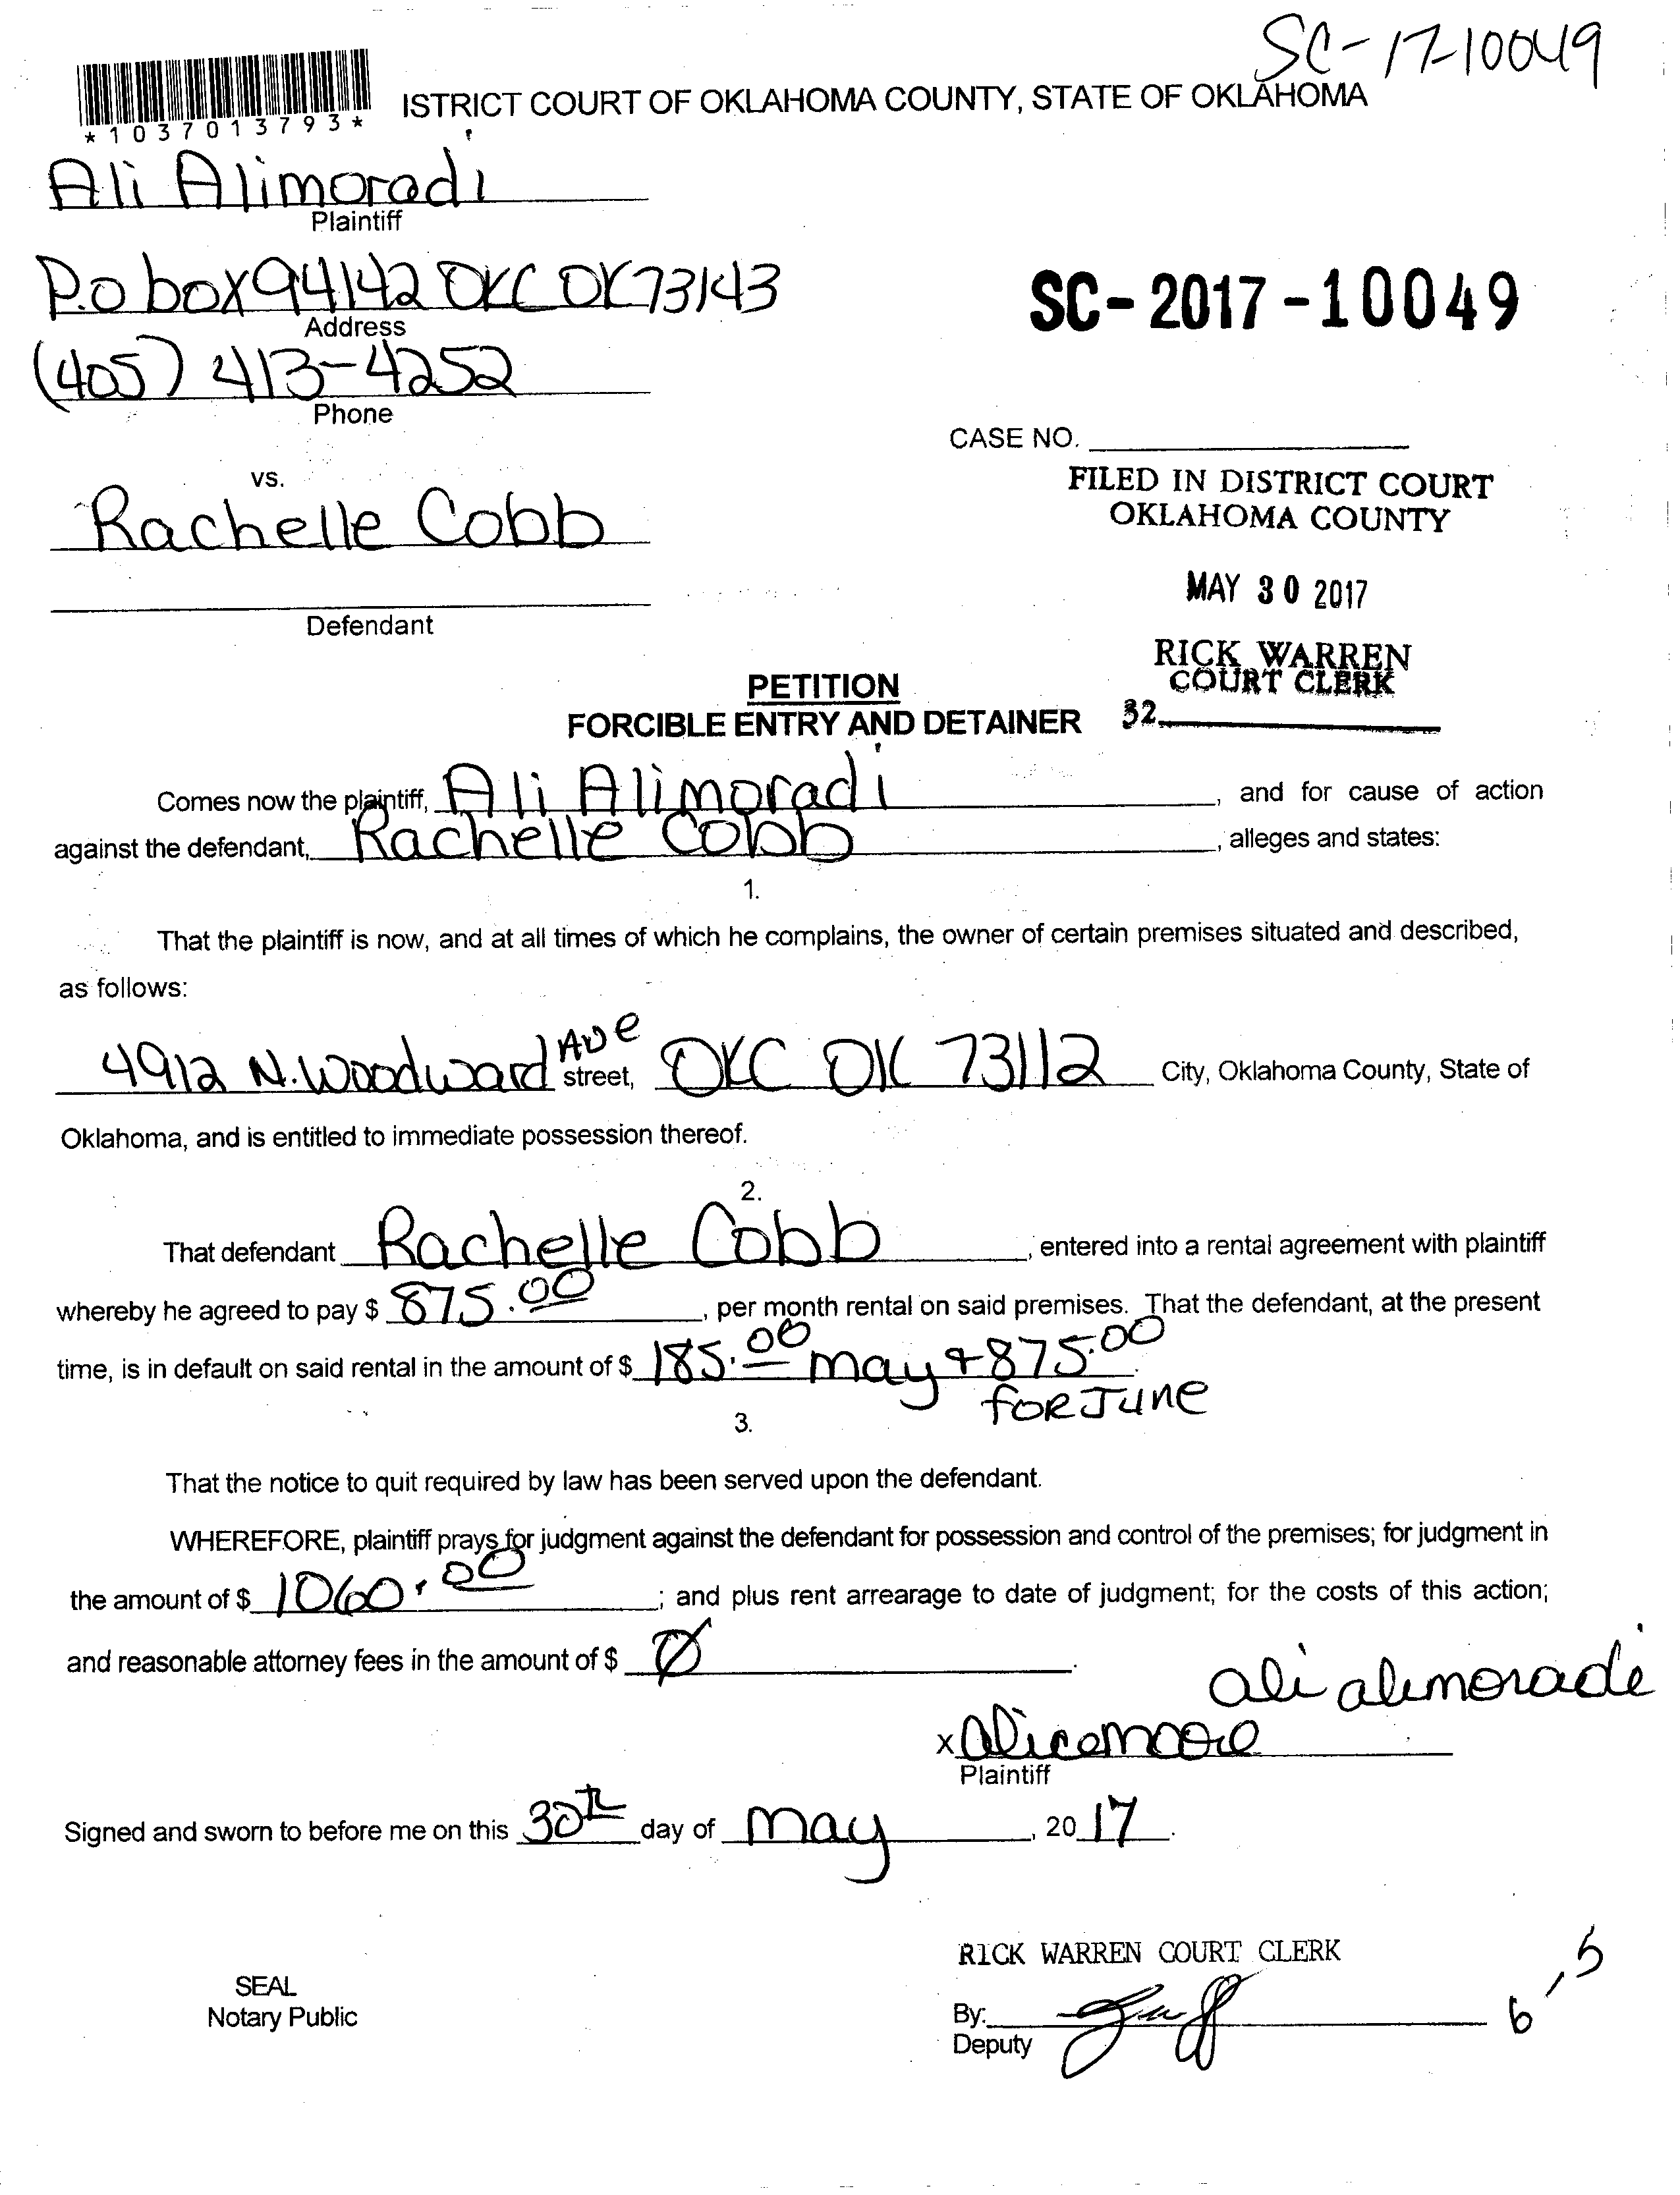 SC-17-10049
ISTRICT COURT OF OKLAHOMA COUNTY, STATE OF OKLAHOMA
*1037013793*
Ali Alimoradi
Plaintiff
P.O box 94142 OKC OK 73143
Address
SC-2017-10049
(405) 413-4252
Phone
CASE NO.
vs.
FILED IN DISTRICT COURT
OKLAHOMA COUNTY
Rachelle Cobb
MAY 30 2017
Defendant
RICK WARREN
COURT CLERK
PETITION
32
FORCIBLE ENTRY AND DETAINER
Comes now the plaintiff, Ali Alimoradi, and for cause of action
against the defendant, Rachelle Cobb, alleges and states:
1.
That the plaintiff is now, and at all times of which he complains, the owner of certain premises situated and described,
as follows:
4912 N. Woodward Ave street, OKC OK 73112 City, Oklahoma County, State of
Oklahoma, and is entitled to immediate possession thereof.
2.
That defendant Rachelle Cobb, entered into a rental agreement with plaintiff
whereby he agreed to pay $ 875.00, per month rental on said premises. That the defendant, at the present
time, is in default on said rental in the amount of $ 185.00 may + 875.00.
for June
3.
That the notice to quit required by law has been served upon the defendant.
WHEREFORE, plaintiff prays for judgment against the defendant for possession and control of the premises; for judgment in
the amount of $ 1060.00; and plus rent arrearage to date of judgment; for the costs of this action;
and reasonable attorney fees in the amount of $ Ø.
ali alimoradi
x alicemoore
Plaintiff
Signed and sworn to before me on this 30th day of may, 2017.
RICK WARREN COURT CLERK
SEAL
Notary Public
By:
Deputy
6,5